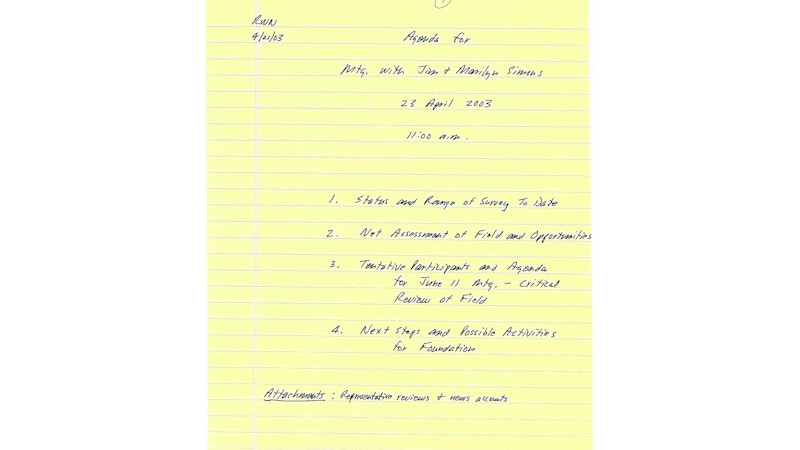 RWN
4/21/03
Agenda for
Mtg. with Jim + Marilyn Simons
23 April 2003
11:00 a.m.
1. Status and Range of Survey To Date
2. Net Assessment of Field and Opportunities
3. Tentative Participants and Agenda
for June 11 Mtg. – Critical
Review of Field
4. Next Steps and Possible Activities
for Foundation
Attachments : Representative reviews + news accounts